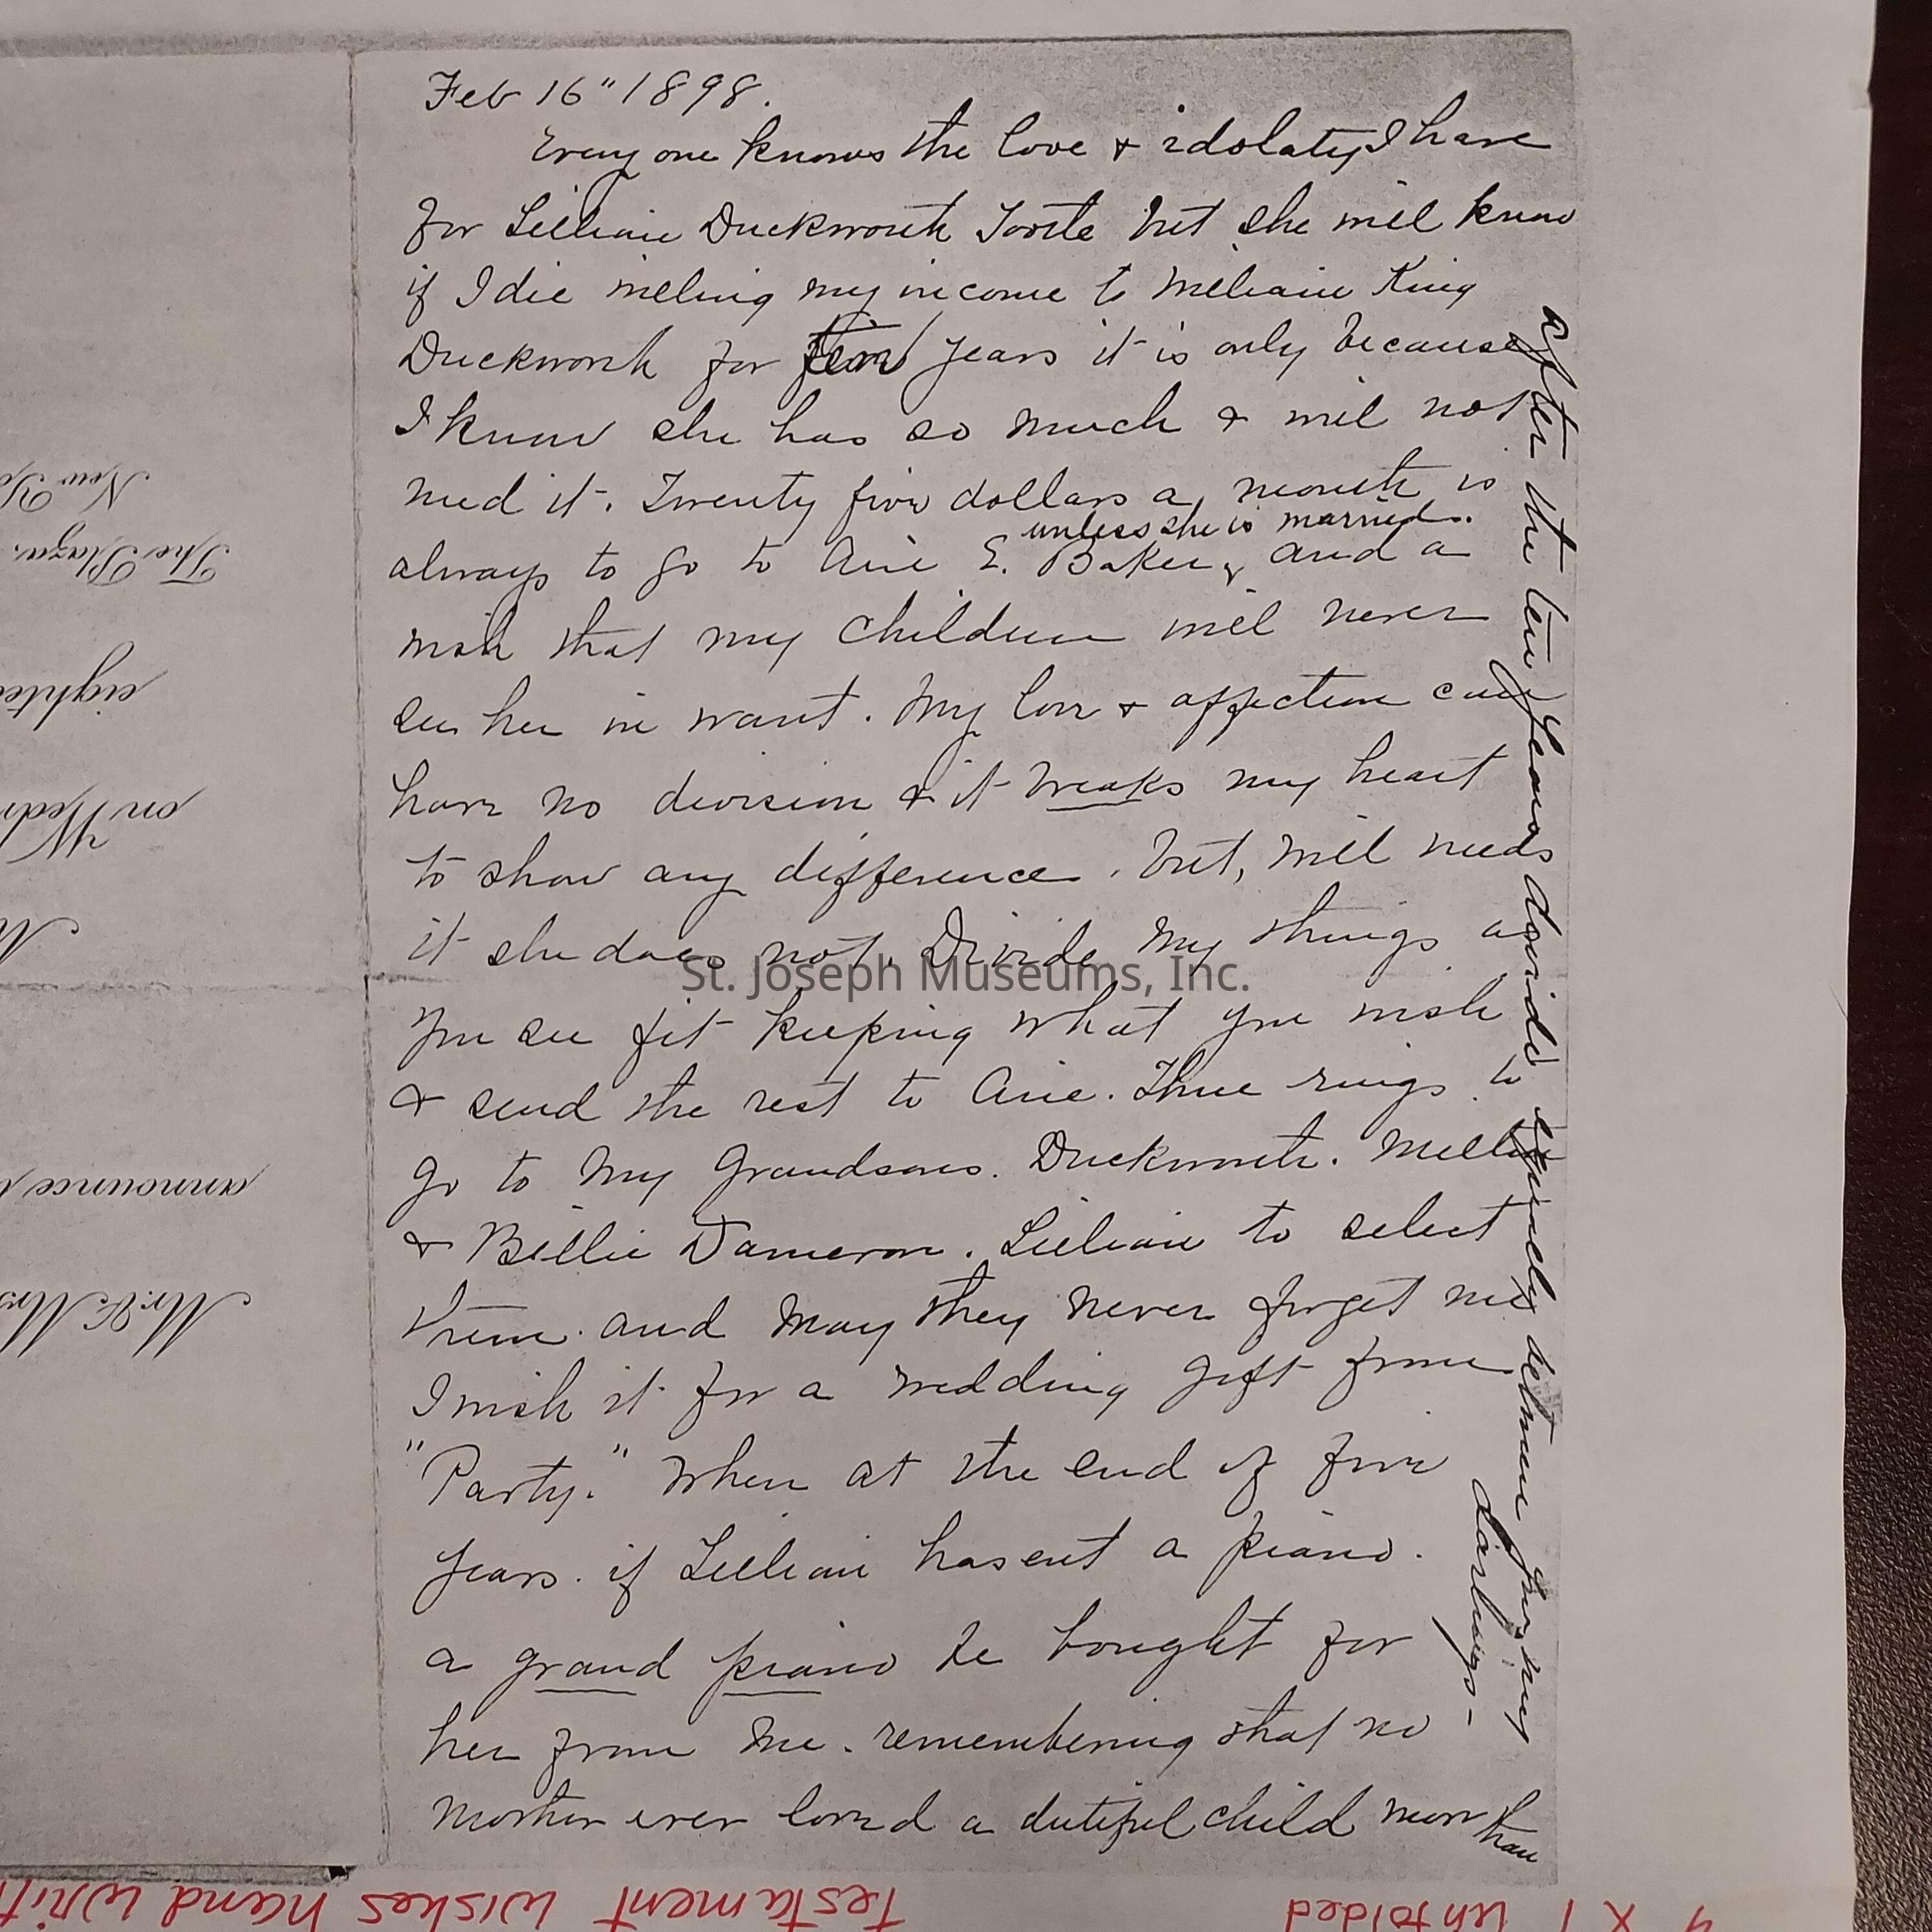 Feb 16" 1898.
Every one knows the love & idolatry I have
for Lillian Duckworth Tootle but she will know
if I die willing my income to William King
Duckworth for ten years it is only because
I know she has so much & will not
need it. Twenty five dollars a month is
unless she is married.
always to go to Avie E. Baker, and a
wish that my children will never
see her in want. My love & affection can
have no division & it breaks my heart
to show any difference. but, Will needs
it she does not. Divide my things as
you see fit keeping what you wish
& send the rest to Avie. Three rings to
go to my Grandsons. Duckworth. Milton
& Billie Dameron. Lillian to select
them. and may they never forget me
I wish it for a wedding gift from
"Party." When at the end of five
years. if Lillian hasent a piano.
a grand piano be bought for
her from me. remembering that no
mother ever loved a dutiful child more than
after the ten years divide equally between for my
darlings -
St. Joseph Museums, Inc.
New Yo
The Plaza.
eighte
on Wedn
M
announce
Mr. & Mrs
Testament wishes hand writt
4 x 7 unfolded